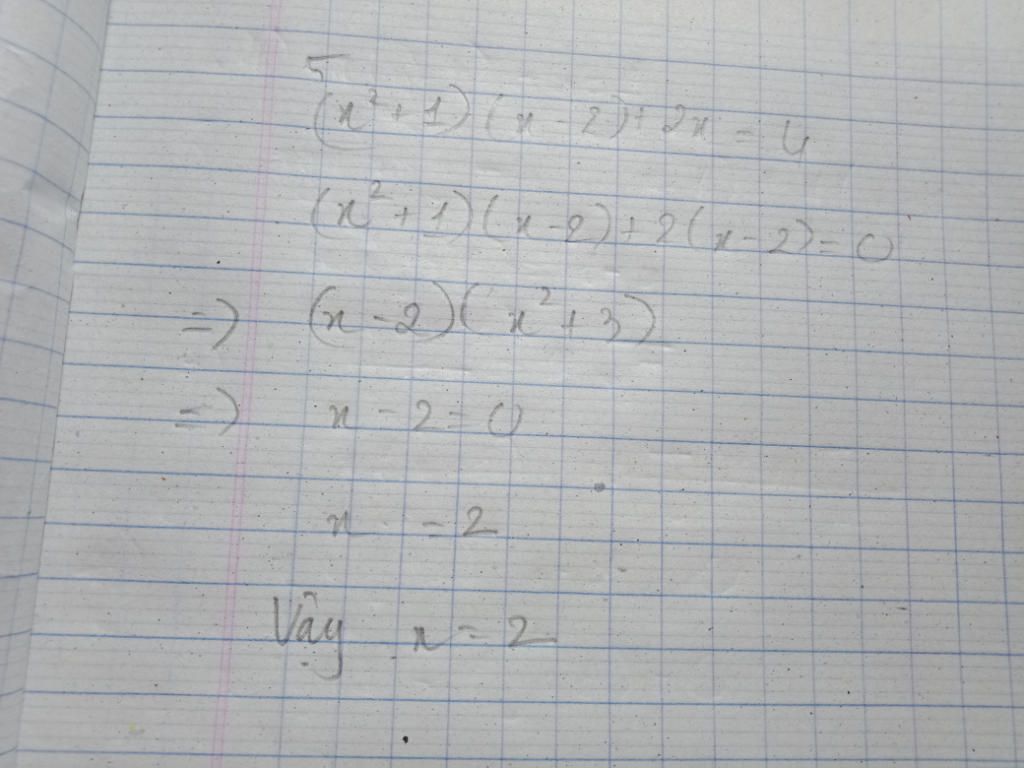 5
(x² + 1)(x - 2) + 2x = 4
(x² + 1)(x - 2) + 2(x - 2) = 0
=> (x - 2)(x² + 3)
=> x - 2 = 0
x = 2
Vậy x = 2